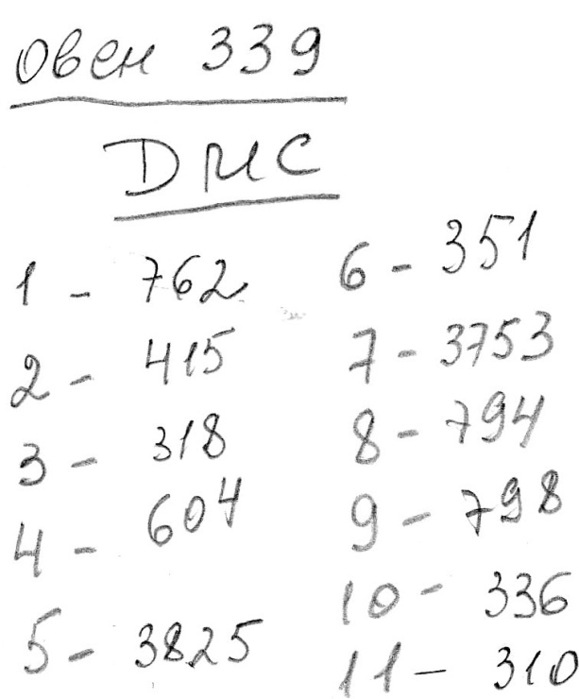 Овен 339
DMC
1 - 762
2 - 415
3 - 318
4 - 604
5 - 3825
6 - 351
7 - 3753
8 - 794
9 - 798
10 - 336
11 - 310